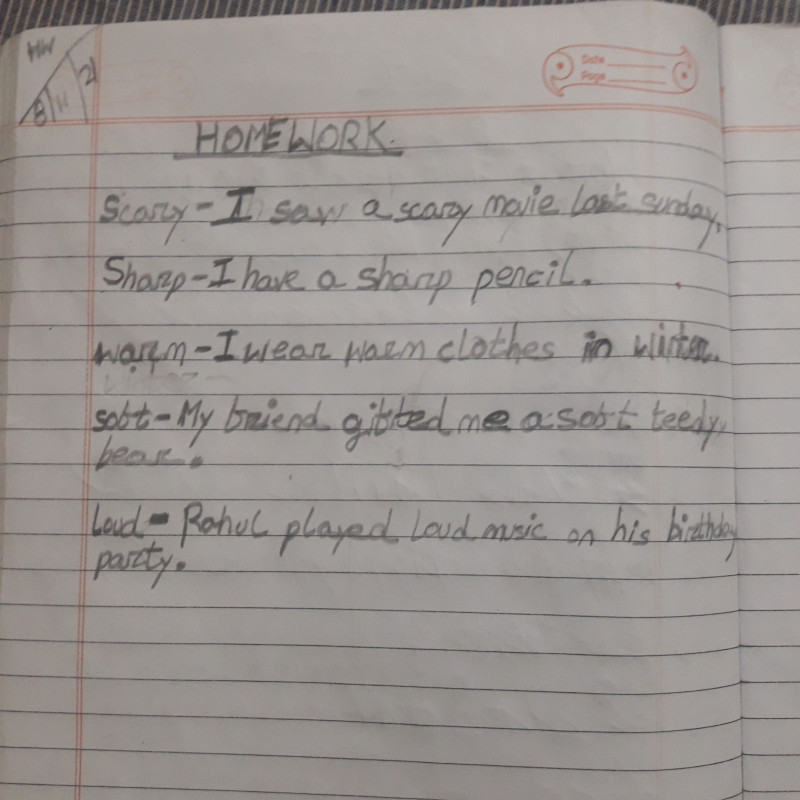 HW
8/11/21
Date
Page
HOMEWORK.
Scary - I saw a scary movie last sunday.
Sharp - I have a sharp pencil.
warm - I wear warm clothes in winter.
soft - My friend gifted me a soft teedy
bear.
Loud - Rahul played loud music on his birthday
party.